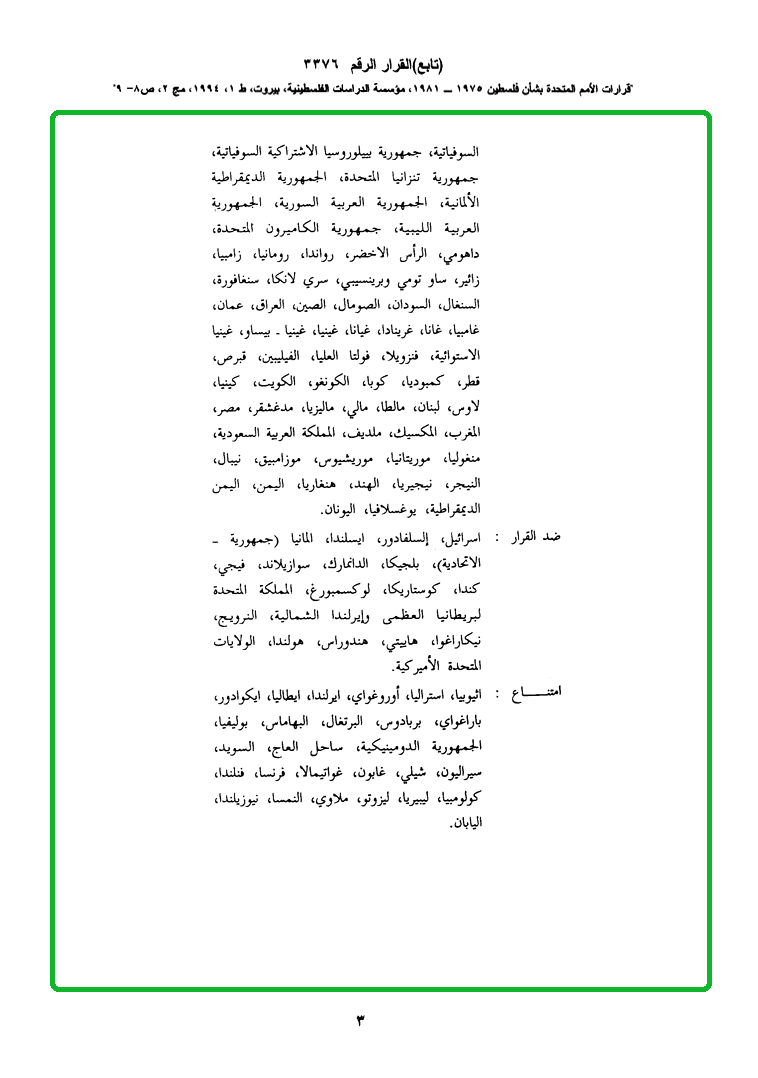 (تابع)القرار الرقم ٣٣٧٦
"قرارات الأمم المتحدة بشأن فلسطين ١٩٧٥ ــ ١٩٨١، مؤسسة الدراسات الفلسطينية، بيروت، ط ١، ١٩٩٤، مج ٢، ص٨- ٩"
السوفياتية، جمهورية بييلوروسيا الاشتراكية السوفياتية،
جمهورية تنزانيا المتحدة، الجمهورية الديمقراطية
الألمانية، الجمهورية العربية السورية، الجمهورية
العربية الليبية، جمهورية الكاميرون المتحدة،
داهومي، الرأس الاخضر، رواندا، رومانيا، زامبيا،
زائير، ساو تومي وبرينسيبي، سري لانكا، سنغافورة،
السنغال، السودان، الصومال، الصين، العراق، عمان،
غامبيا، غانا، غرينادا، غيانا، غينيا، غينيا ـ بيساو، غينيا
الاستوائية، فنزويلا، فولتا العليا، الفيليبين، قبرص،
قطر، كمبوديا، كوبا، الكونغو، الكويت، كينيا،
لاوس، لبنان، مالطا، مالي، ماليزيا، مدغشقر، مصر،
المغرب، المكسيك، ملديف، المملكة العربية السعودية،
منغوليا، موريتانيا، موريشيوس، موزامبيق، نيبال،
النيجر، نيجيريا، الهند، هنغاريا، اليمن، اليمن
الديمقراطية، يوغسلافيا، اليونان.
ضد القرار : اسرائيل، إلسلفادور، ايسلندا، المانيا (جمهورية ـ
الاتحادية)، بلجيكا، الدانمارك، سوازيلاند، فيجي،
كندا، كوستاريكا، لوكسمبورغ، المملكة المتحدة
لبريطانيا العظمى وإيرلندا الشمالية، النرويج،
نيكاراغوا، هاييتي، هندوراس، هولندا، الولايات
المتحدة الأميركية.
امتنـــــاع : اثيوبيا، استراليا، أوروغواي، ايرلندا، ايطاليا، ايكوادور،
باراغواي، بربادوس، البرتغال، البهاماس، بوليفيا،
الجمهورية الدومينيكية، ساحل العاج، السويد،
سيراليون، شيلي، غابون، غواتيمالا، فرنسا، فنلندا،
كولومبيا، ليبيريا، ليزوتو، ملاوي، النمسا، نيوزيلندا،
اليابان.
٣